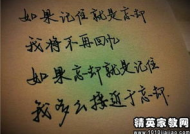 如果记住就是忘却
我将不再回忆
如果忘却就是记住
我多么接近于忘却
精英家教网